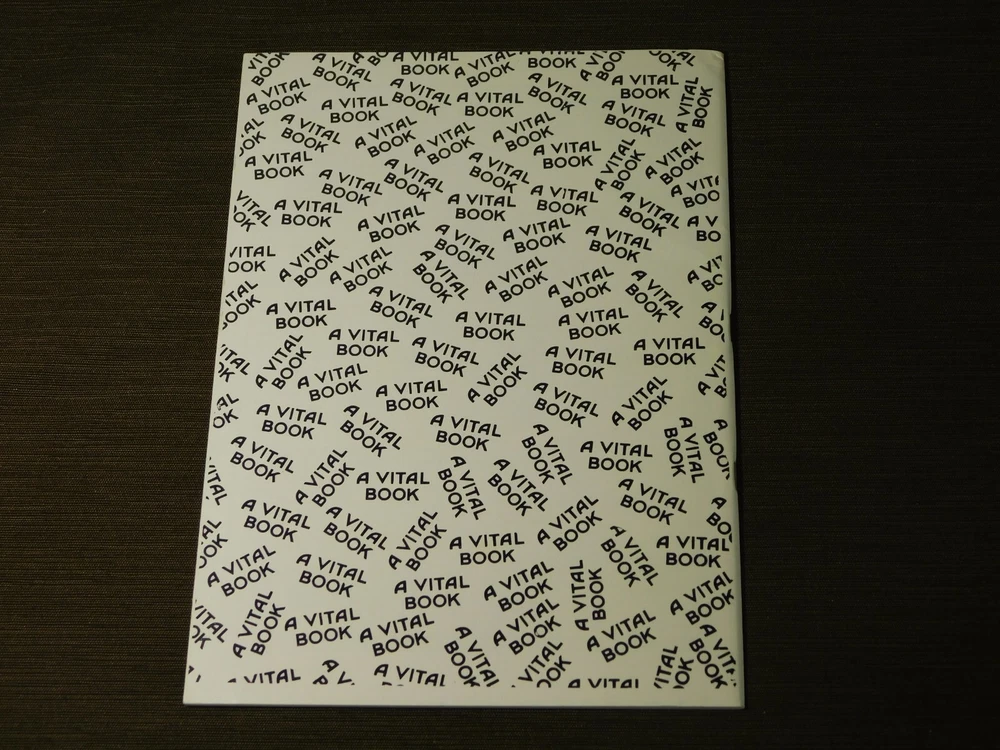 A VITAL
BOOK
A VITAL
BOOK
A VITAL
BOOK
A VITAL
BOOK
A VITAL
BOOK
A VITAL
BOOK
A VITAL
BOOK
A VITAL
BOOK
A VITAL
BOOK
A VITAL
BOOK
A VITAL
BOOK
A VITAL
BOOK
A VITAL
BOOK
A VITAL
BOOK
A VITAL
BOOK
A VITAL
BOOK
A VITAL
BOOK
A VITAL
BOOK
A VITAL
BOOK
A VITAL
BOOK
A VITAL
BOOK
A VITAL
BOOK
A VITAL
BOOK
A VITAL
BOOK
A VITAL
BOOK
A VITAL
BOOK
A VITAL
BOOK
A VITAL
BOOK
A VITAL
BOOK
A VITAL
BOOK
A VITAL
BOOK
A VITAL
BOOK
A VITAL
BOOK
A VITAL
BOOK
A VITAL
BOOK
A VITAL
BOOK
A VITAL
BOOK
A VITAL
BOOK
A VITAL
BOOK
A VITAL
BOOK
A VITAL
BOOK
A VITAL
BOOK
A VITAL
BOOK
A VITAL
BOOK
A VITAL
BOOK
A VITAL
BOOK
A VITAL
BOOK
A VITAL
BOOK
A VITAL
BOOK
A VITAL
BOOK
A VITAL
BOOK
A VITAL
BOOK
A VITAL
BOOK
A VITAL
BOOK
A VITAL
BOOK
A VITAL
BOOK
A VITAL
BOOK
A VITAL
BOOK
A VITAL
BOOK
A VITAL
BOOK
A VITAL
BOOK
A VITAL
BOOK
A VITAL
BOOK
A VITAL
BOOK
A VITAL
BOOK
A VITAL
BOOK
A VITAL
BOOK
A VITAL
BOOK
A VITAL
BOOK
A VITAL
BOOK
A VITAL
BOOK
A VITAL
BOOK
A VITAL
BOOK
A VITAL
BOOK
A VITAL
BOOK
A VITAL
BOOK
A VITAL
BOOK
A VITAL
BOOK
A VITAL
BOOK
A VITAL
BOOK
A VITAL
BOOK
A VITAL
BOOK